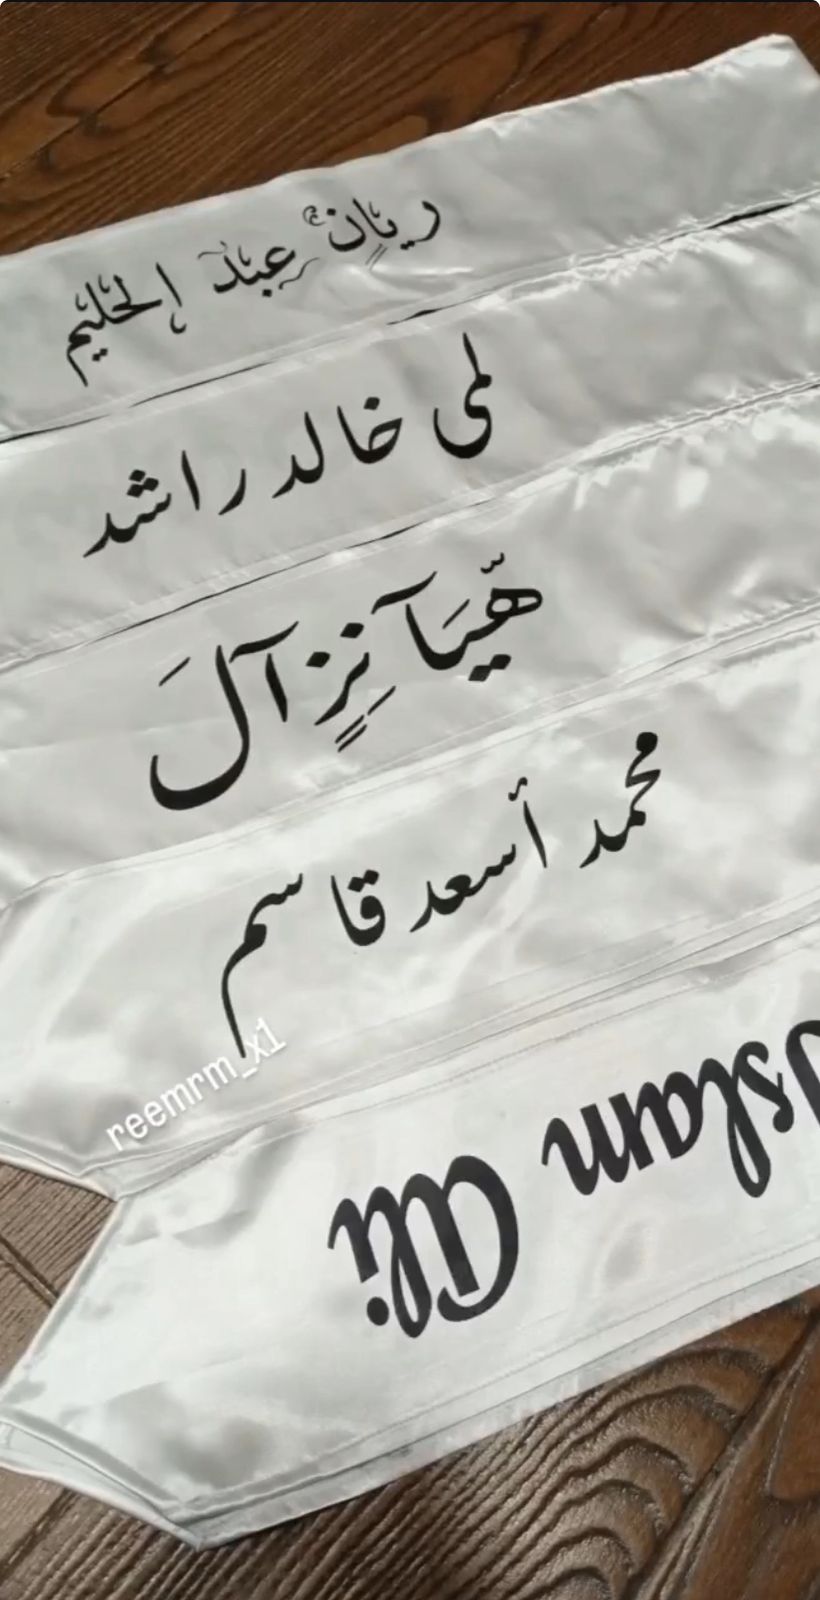 ريان عبد الحليم
لمى خالد راشد
هّيَآ نِزٍآلَ
محمد أسعد قاسم
reemrm_x1
Islam Ali